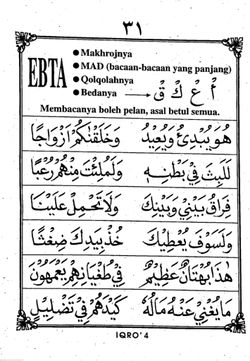 ٣١
EBTA
● Makhrojnya
● MAD (bacaan-bacaan yang panjang)
● Qolqolahnya
● Bedanya → أ عْ كْ قْ
Membacanya boleh pelan, asal betul semua.
هُوَ يُبْدِئُ وَيُعِيدُ وَخَلَقْنٰكُمْ اَزْوَاجًا
لَلَبِثَ فِيْ بَطْنِهٖ وَلَمُلِئْتَ مِنْهُمْ رُعْبًا
فِرَاقُ بَيْنِيْ وَبَيْنِكَ وَلَا تَحْمِلْ عَلَيْنَا
وَلَسَوْفَ يُعْطِيْكَ خُذْ بِيَدِكَ ضِغْثًا
هٰذَا بُهْتَانٌ عَظِيْمٌ فِيْ طُغْيَانِهِمْ يَعْمَهُوْنَ
مَا يُغْنِيْ عَنْهُ مَالُهُ كَيْدَهُمْ فِيْ تَضْلِيْلٍ
IQRO' 4